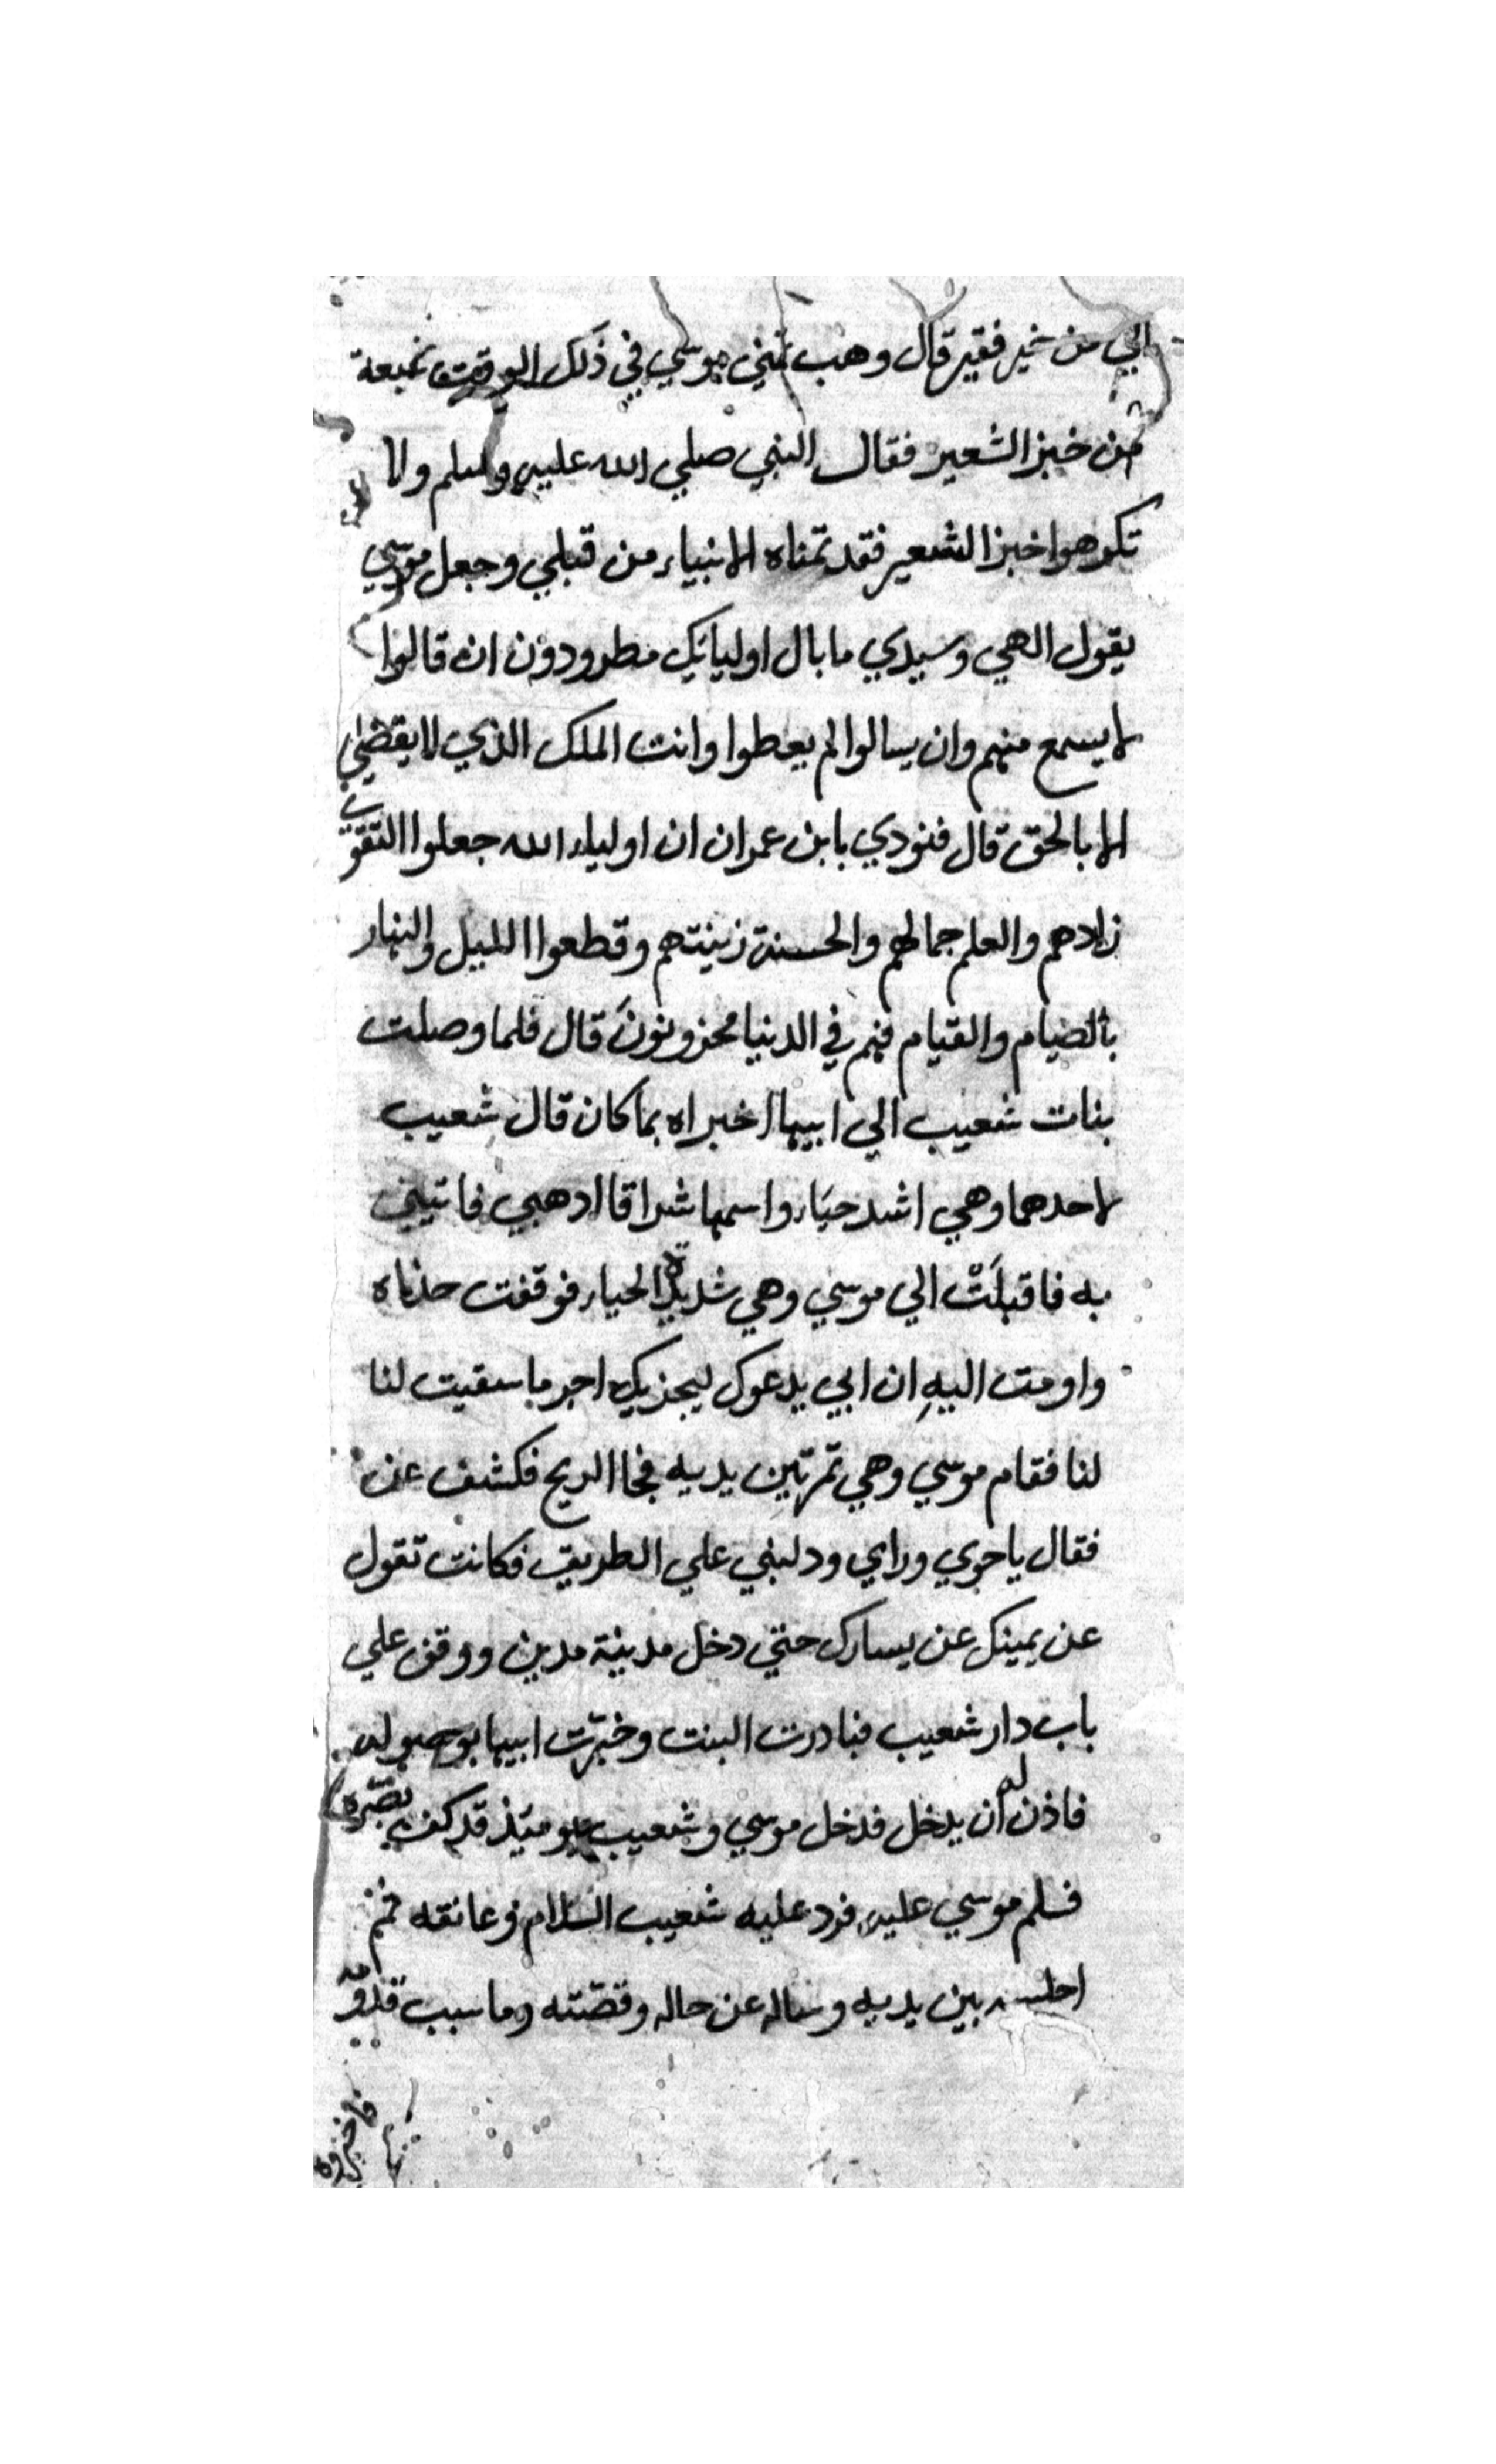 الي من خير فقير قال وهب تمني موسي في ذلك الوقت شبعة
من خبز الشعير فقال النبي صلي الله عليه وسلم ولا
تكرهوا خبز الشعير فقد تمناه الانبياء من قبلي وجعل موسي
يقول الهي وسيدي ما بال اوليايك مطرودون ان قالوا
لا يسمع منهم وان يسالوا لم يعطوا وانت الملك الذي لا يقضي
الا بالحق قال فنودي يا بن عمران ان اولياء الله جعلوا التقوي
زادهم والعلم جمالهم والحسنة زينتهم وقطعوا الليل والنهار
بالصيام والقيام فهم في الدنيا محزونونَ قال فلما وصلت
بنات شعيب الي ابيها اخبراه بما كان قال شعيب
لاحدهما وهي اشد حيَاء واسمها شراقا ادهبي فاتيني
به فاقبلَتْ الي موسي وهي شديدة الحياء فوقفت حذاه
واومت اليهِ ان ابي يدعوك ليجزيك اجر ما سقيت لنا
لنا فقام موسي وهي تمر بين يديه فجا الريح فكشف عن
فقال ياحوي وراي ودليني علي الطريق فكانت تقول
عن يمينك عن يسارك حتي دخل مدينة مدين ووقف علي
باب دار شعيب فبادرت البنت وخبرّت ابيها بوصوله
فاذن له ان يدخل فدخل موسي وشعيب يوميذ قد كف بصره
فسلم موسي عليه فرد عليه شعيب السلام وعانقه ثم
اجلسه بين يديه وساله عن حاله وقصّته وما سبب قدومه
فاخبره